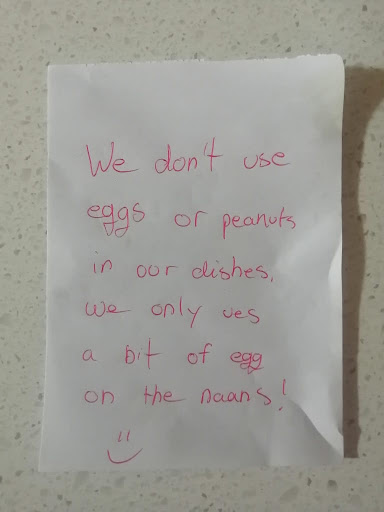 We don't use
eggs or peanuts
in our dishes,
we only ues
a bit of egg
on the naans!